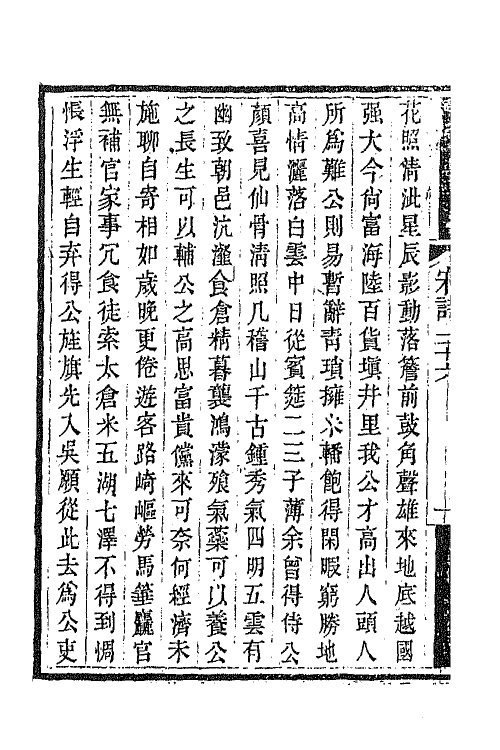 花照清泚星辰影動落簷前鼓角聲雄來地底越國
强大今尙富海陸百貨塡井里我公才高出人頭人
所爲難公則易暫辭靑瑣擁米轓飽得閑暇窮勝地
高情灑落白雲中日從賓筵二三子薄余曾得侍公
顔喜見仙骨淸照几稽山千古鍾秀氣四明五雲有
幽致朝邑沆瀣食倉精暮襲鴻濛飱氣藥可以養公
之長生可以輔公之高思富貴儻來可奈何經濟未
施聊自寄相如歲晚更倦遊客路崎嶇勞馬箠竊官
無補官家事冗食徒索太倉米五湖七澤不得到惆
悵浮生輕自弃得公旌旗先入吳願從此去爲公吏
宋詩二十六